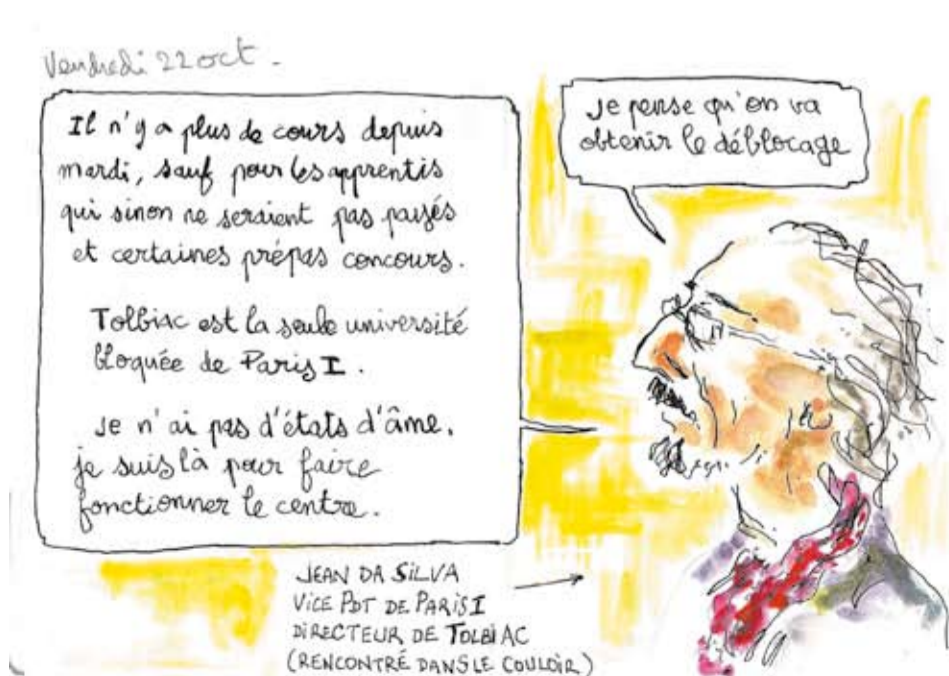 Vendredi 22 oct.
Il n'y a plus de cours depuis
mardi, sauf pour les apprentis
qui sinon ne seraient pas payés
et certaines prépas concours.
Tolbiac est la seule université
bloquée de Paris I.
Je n'ai pas d'états d'âme.
je suis là pour faire
fonctionner le centre.
Je pense qu'on va
obtenir le déblocage
JEAN DA SILVA
VICE PDT DE PARIS I
DIRECTEUR DE TOLBIAC
(RENCONTRÉ DANS LE COULOIR)